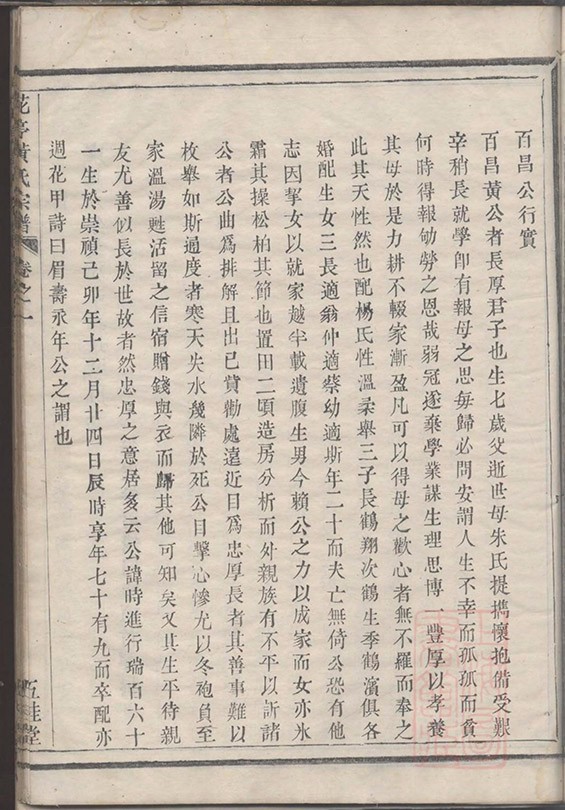 百昌公行實
百昌黃公者長厚君子也生七歲父逝世母朱氏提攜懷抱備受艱
辛稍長就學即有報母之思每歸必問安謂人生不幸而孤孤而貧
何時得報劬勞之恩哉弱冠遂棄學業謀生理思博一豐厚以孝養
其母於是力耕不輟家漸盈凡可以得母之歡心者無不羅而奉之
此其天性然也配楊氏性溫柔舉三子長鶴翔次鶴生季鶴濱俱各
婚配生女三長適翁仲適蔡幼適斯年二十而夫亡無倚公恐有他
志因挈女以就家越半載遺腹生男今賴公之力以成家而女亦氷
霜其操松柏其節也置田二頃造房分析而外親族有不平以訢諸
公者公曲爲排解且出己貲勸處遠近目爲忠厚長者其善事難以
枚舉如斯過度者寒天失水幾隣於死公目擊心慘尤以冬袍負至
家溫湯甦活留之信宿贈錢與衣而歸其他可知矣又其生平待親
友尤善似長於世故者然忠厚之意居多云公諱時進行瑞百六十
一生於崇禎己卯年十二月廿四日辰時享年七十有九而卒配亦
週花甲詩曰眉壽永年公之謂也
花亭黃氏宗譜 卷之一
五桂堂